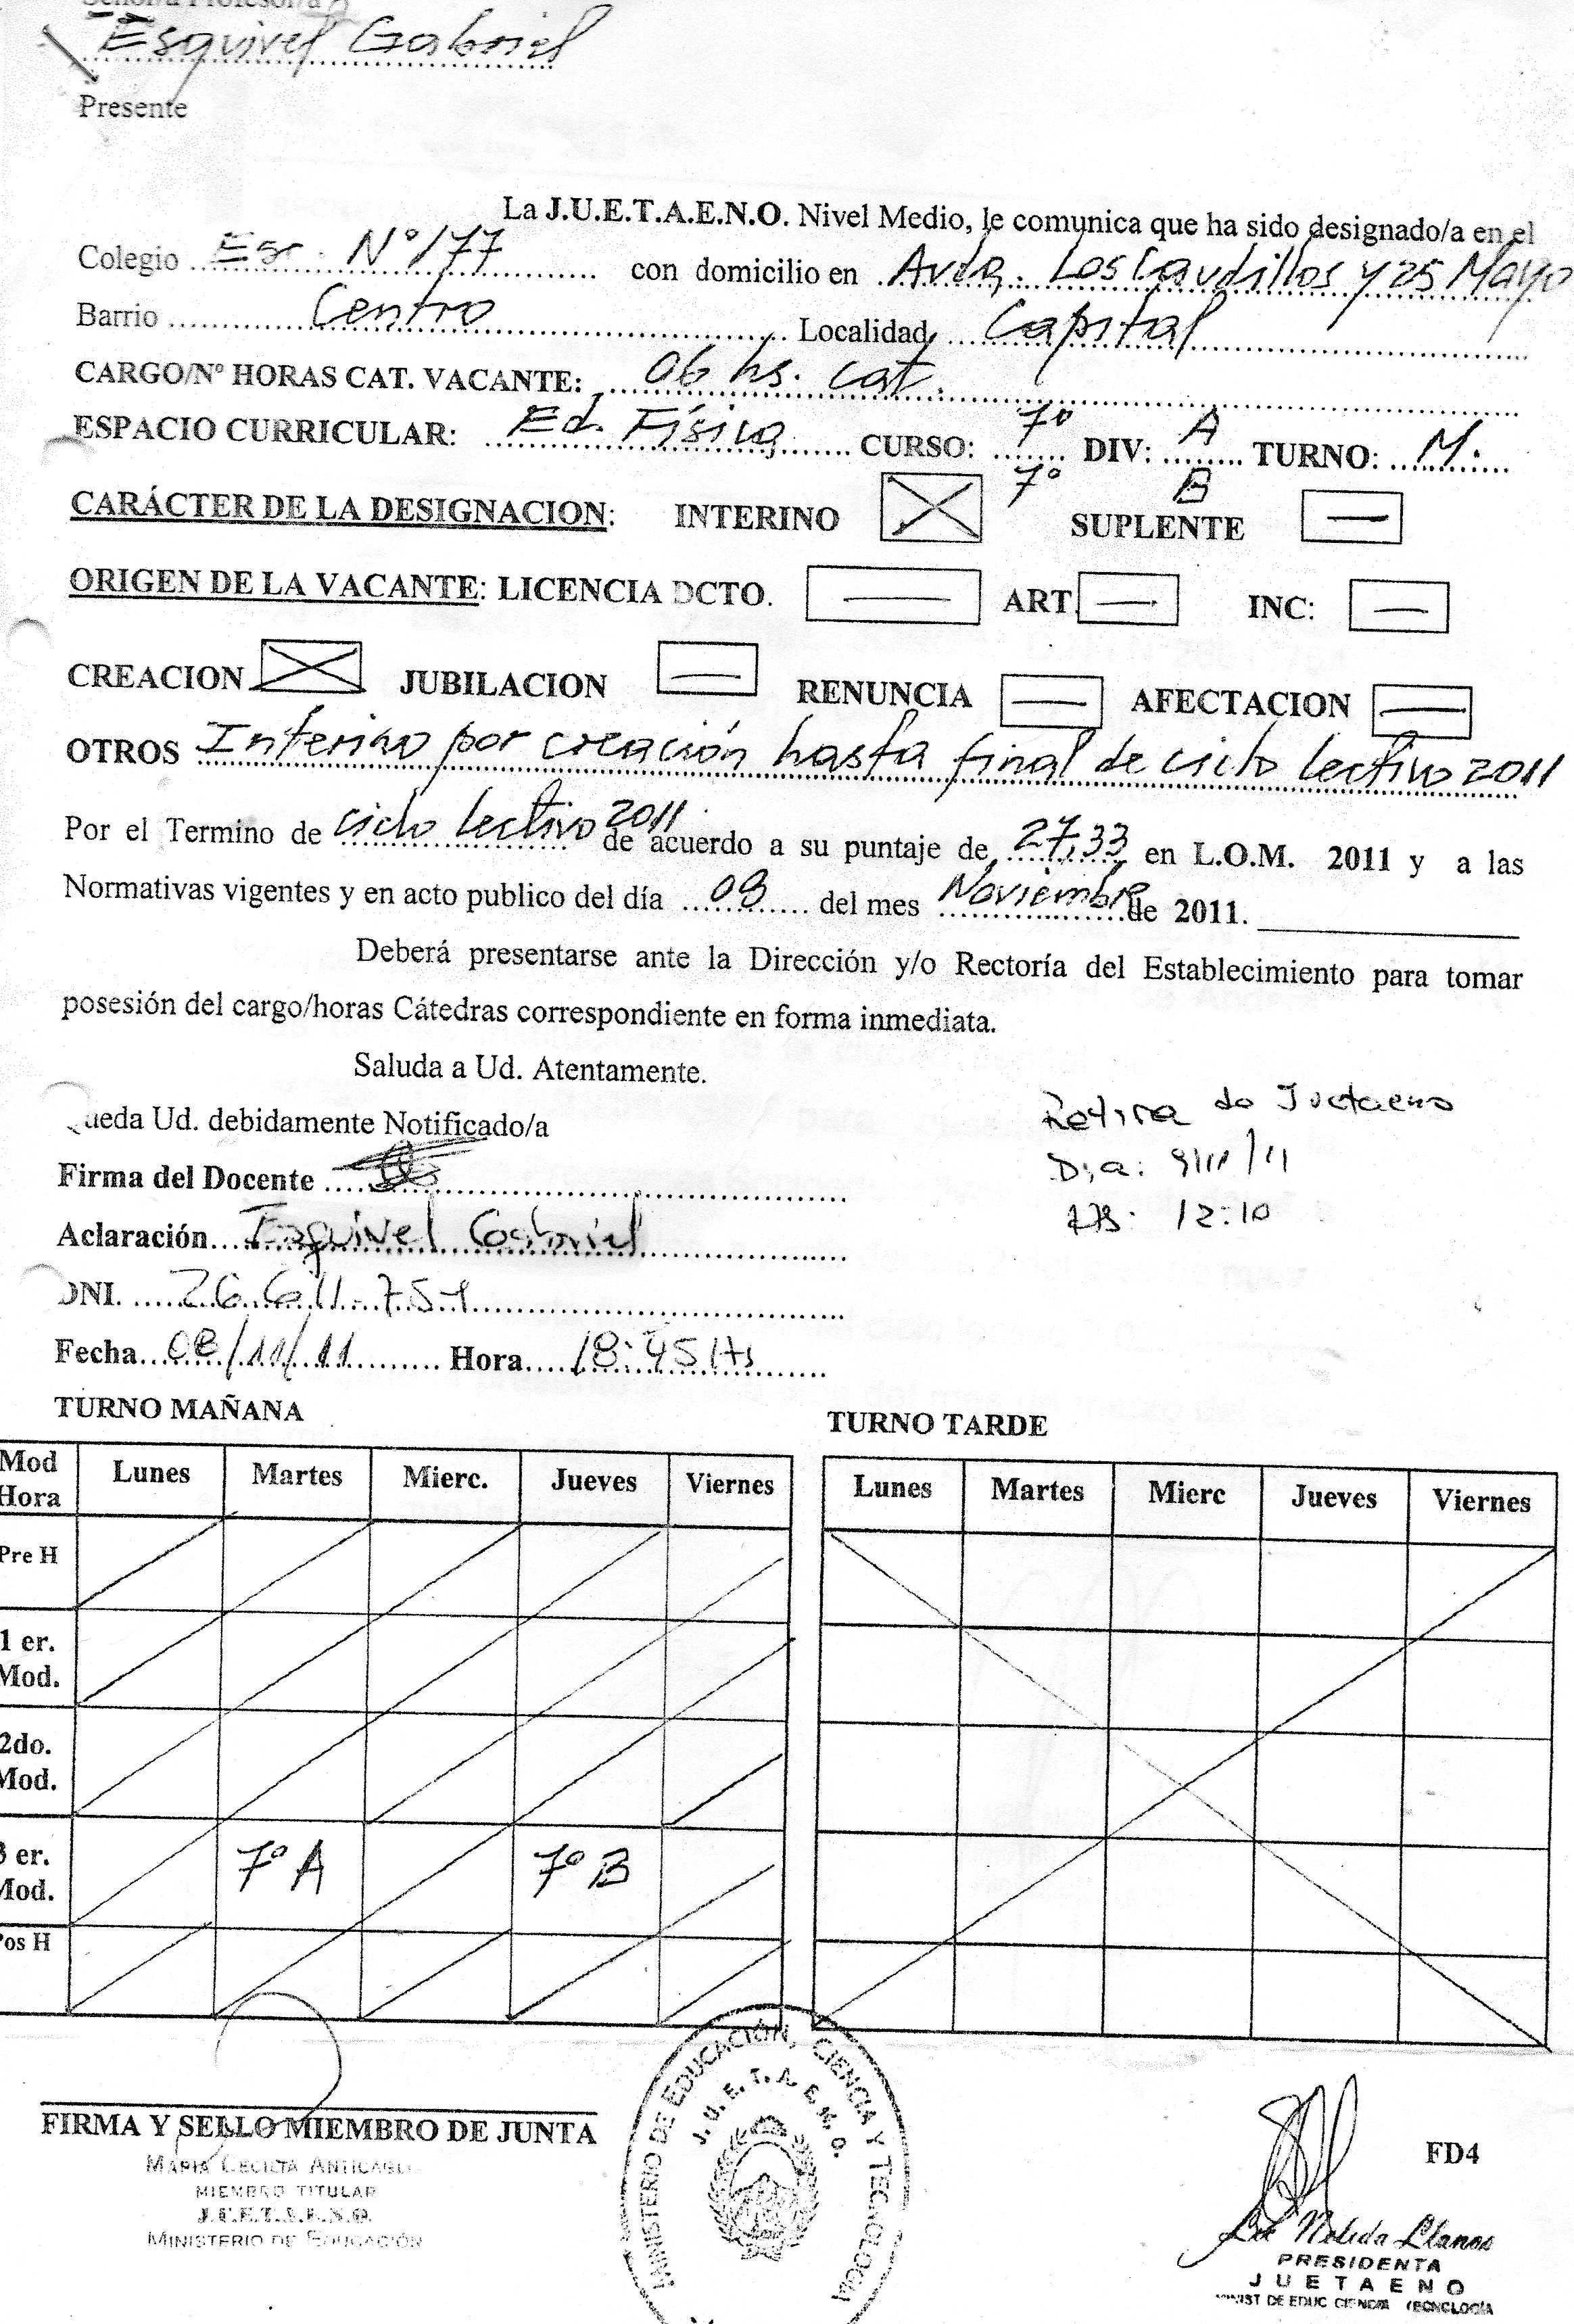 Señor/a Profesor/a
Esquivel Gabriel
Presente
La J.U.E.T.A.E.N.O. Nivel Medio, le comunica que ha sido designado/a en el
Colegio Esc. N° 177 con domicilio en Avda. Los Caudillos y 25 Mayo
Barrio Centro Localidad Capital
CARGO/N° HORAS CAT. VACANTE: 06 hs. cat.
ESPACIO CURRICULAR: Ed. Física CURSO: 7° DIV: A TURNO: M.
7° B
CARÁCTER DE LA DESIGNACION: INTERINO SUPLENTE
ORIGEN DE LA VACANTE: LICENCIA DCTO. ART. INC:
CREACION JUBILACION RENUNCIA AFECTACION
OTROS Interino por creación hasta final de ciclo lectivo 2011
Por el Termino de ciclo lectivo 2011 de acuerdo a su puntaje de 27,33 en L.O.M. 2011 y a las
Normativas vigentes y en acto publico del día 08 del mes Noviembre de 2011.
Deberá presentarse ante la Dirección y/o Rectoría del Establecimiento para tomar
posesión del cargo/horas Cátedras correspondiente en forma inmediata.
Saluda a Ud. Atentamente.
ueda Ud. debidamente Notificado/a
Retira de Juetaeno
Dia: 9/11/11
HS: 12:10
Firma del Docente
Aclaración Esquivel Gabriel
DNI. 26.611.751
Fecha 08/11/11 Hora 18:45 Hs
TURNO MAÑANA TURNO TARDE
Mod Hora Lunes Martes Mierc. Jueves Viernes Lunes Martes Mierc Jueves Viernes
Pre H
1 er. Mod.
2do. Mod.
3 er. Mod. 7° A 7° B
Pos H
FIRMA Y SELLO MIEMBRO DE JUNTA
MARIA CECILIA
MIEMBRO TITULAR
J.U.E.T.A.E.N.O.
MINISTERIO DE EDUCACIÓN
MINISTERIO DE EDUCACIÓN, CIENCIA Y TECNOLOGÍA
J.U.E.T.A.E.N.O.
FD4
Lic Nelida Llanos
PRESIDENTA
JUETAENO
MINIST DE EDUC CIENCIA TECNOLOGÍA